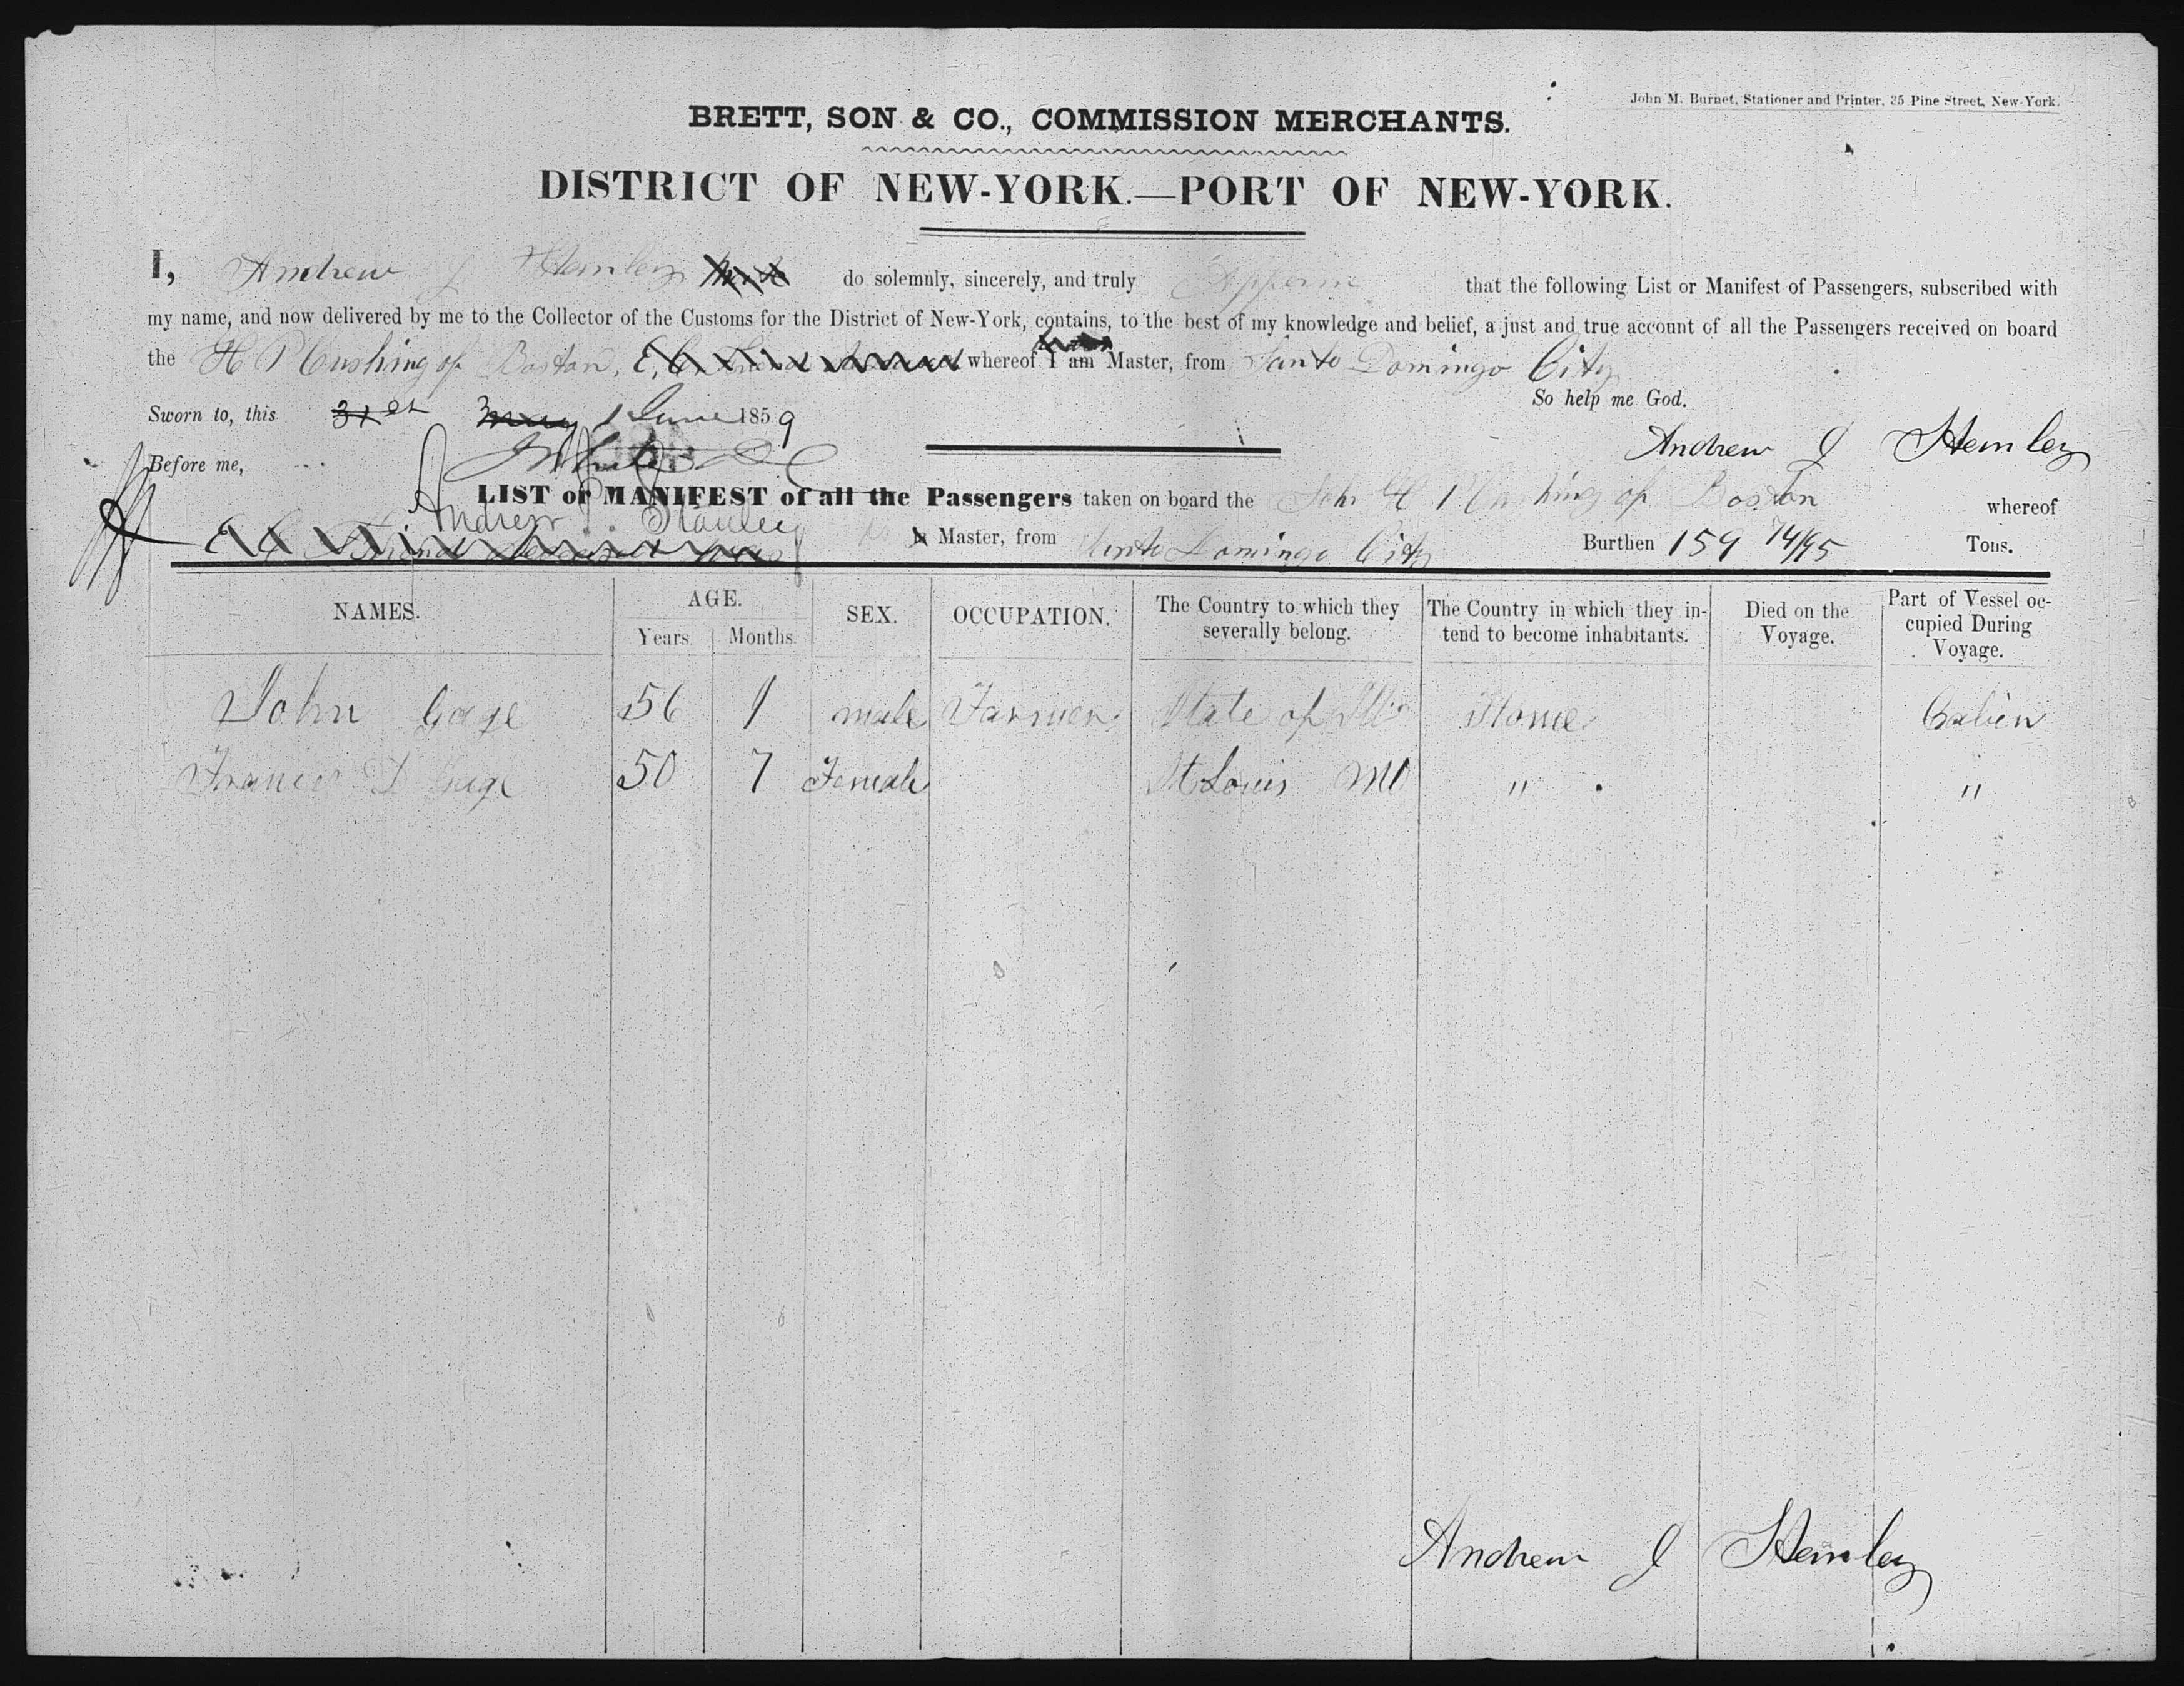 John M. Burnet, Stationer and Printer, 35 Pine Street, New-York.
BRETT, SON & CO., COMMISSION MERCHANTS.
DISTRICT OF NEW-YORK.—PORT OF NEW-YORK.
I, Andrew J Hamley do solemnly, sincerely, and truly Affirm that the following List or Manifest of Passengers, subscribed with
my name, and now delivered by me to the Collector of the Customs for the District of New-York, contains, to the best of my knowledge and belief, a just and true account of all the Passengers received on board
the H P Cushing of Boston, whereof I am Master, from Santo Domingo City
So help me God.
Sworn to, this 31st May 1 June 1859
Andrew J Hemley
Before me,
LIST or MANIFEST of all the Passengers taken on board the Schr H P Cushing of Boston whereof
Andrew J. Stanley
is Master, from Santo Domingo City Burthen 159 74/95 Tons.
NAMES. AGE. SEX. OCCUPATION. The Country to which they severally belong. The Country in which they intend to become inhabitants. Died on the Voyage. Part of Vessel occupied During Voyage.
Years. Months.
John Gage 56 1 male Farmer State of Ills Home Cabien
Frances D Gage 50 7 Female St Louis MO " "
Andrew J Hemley